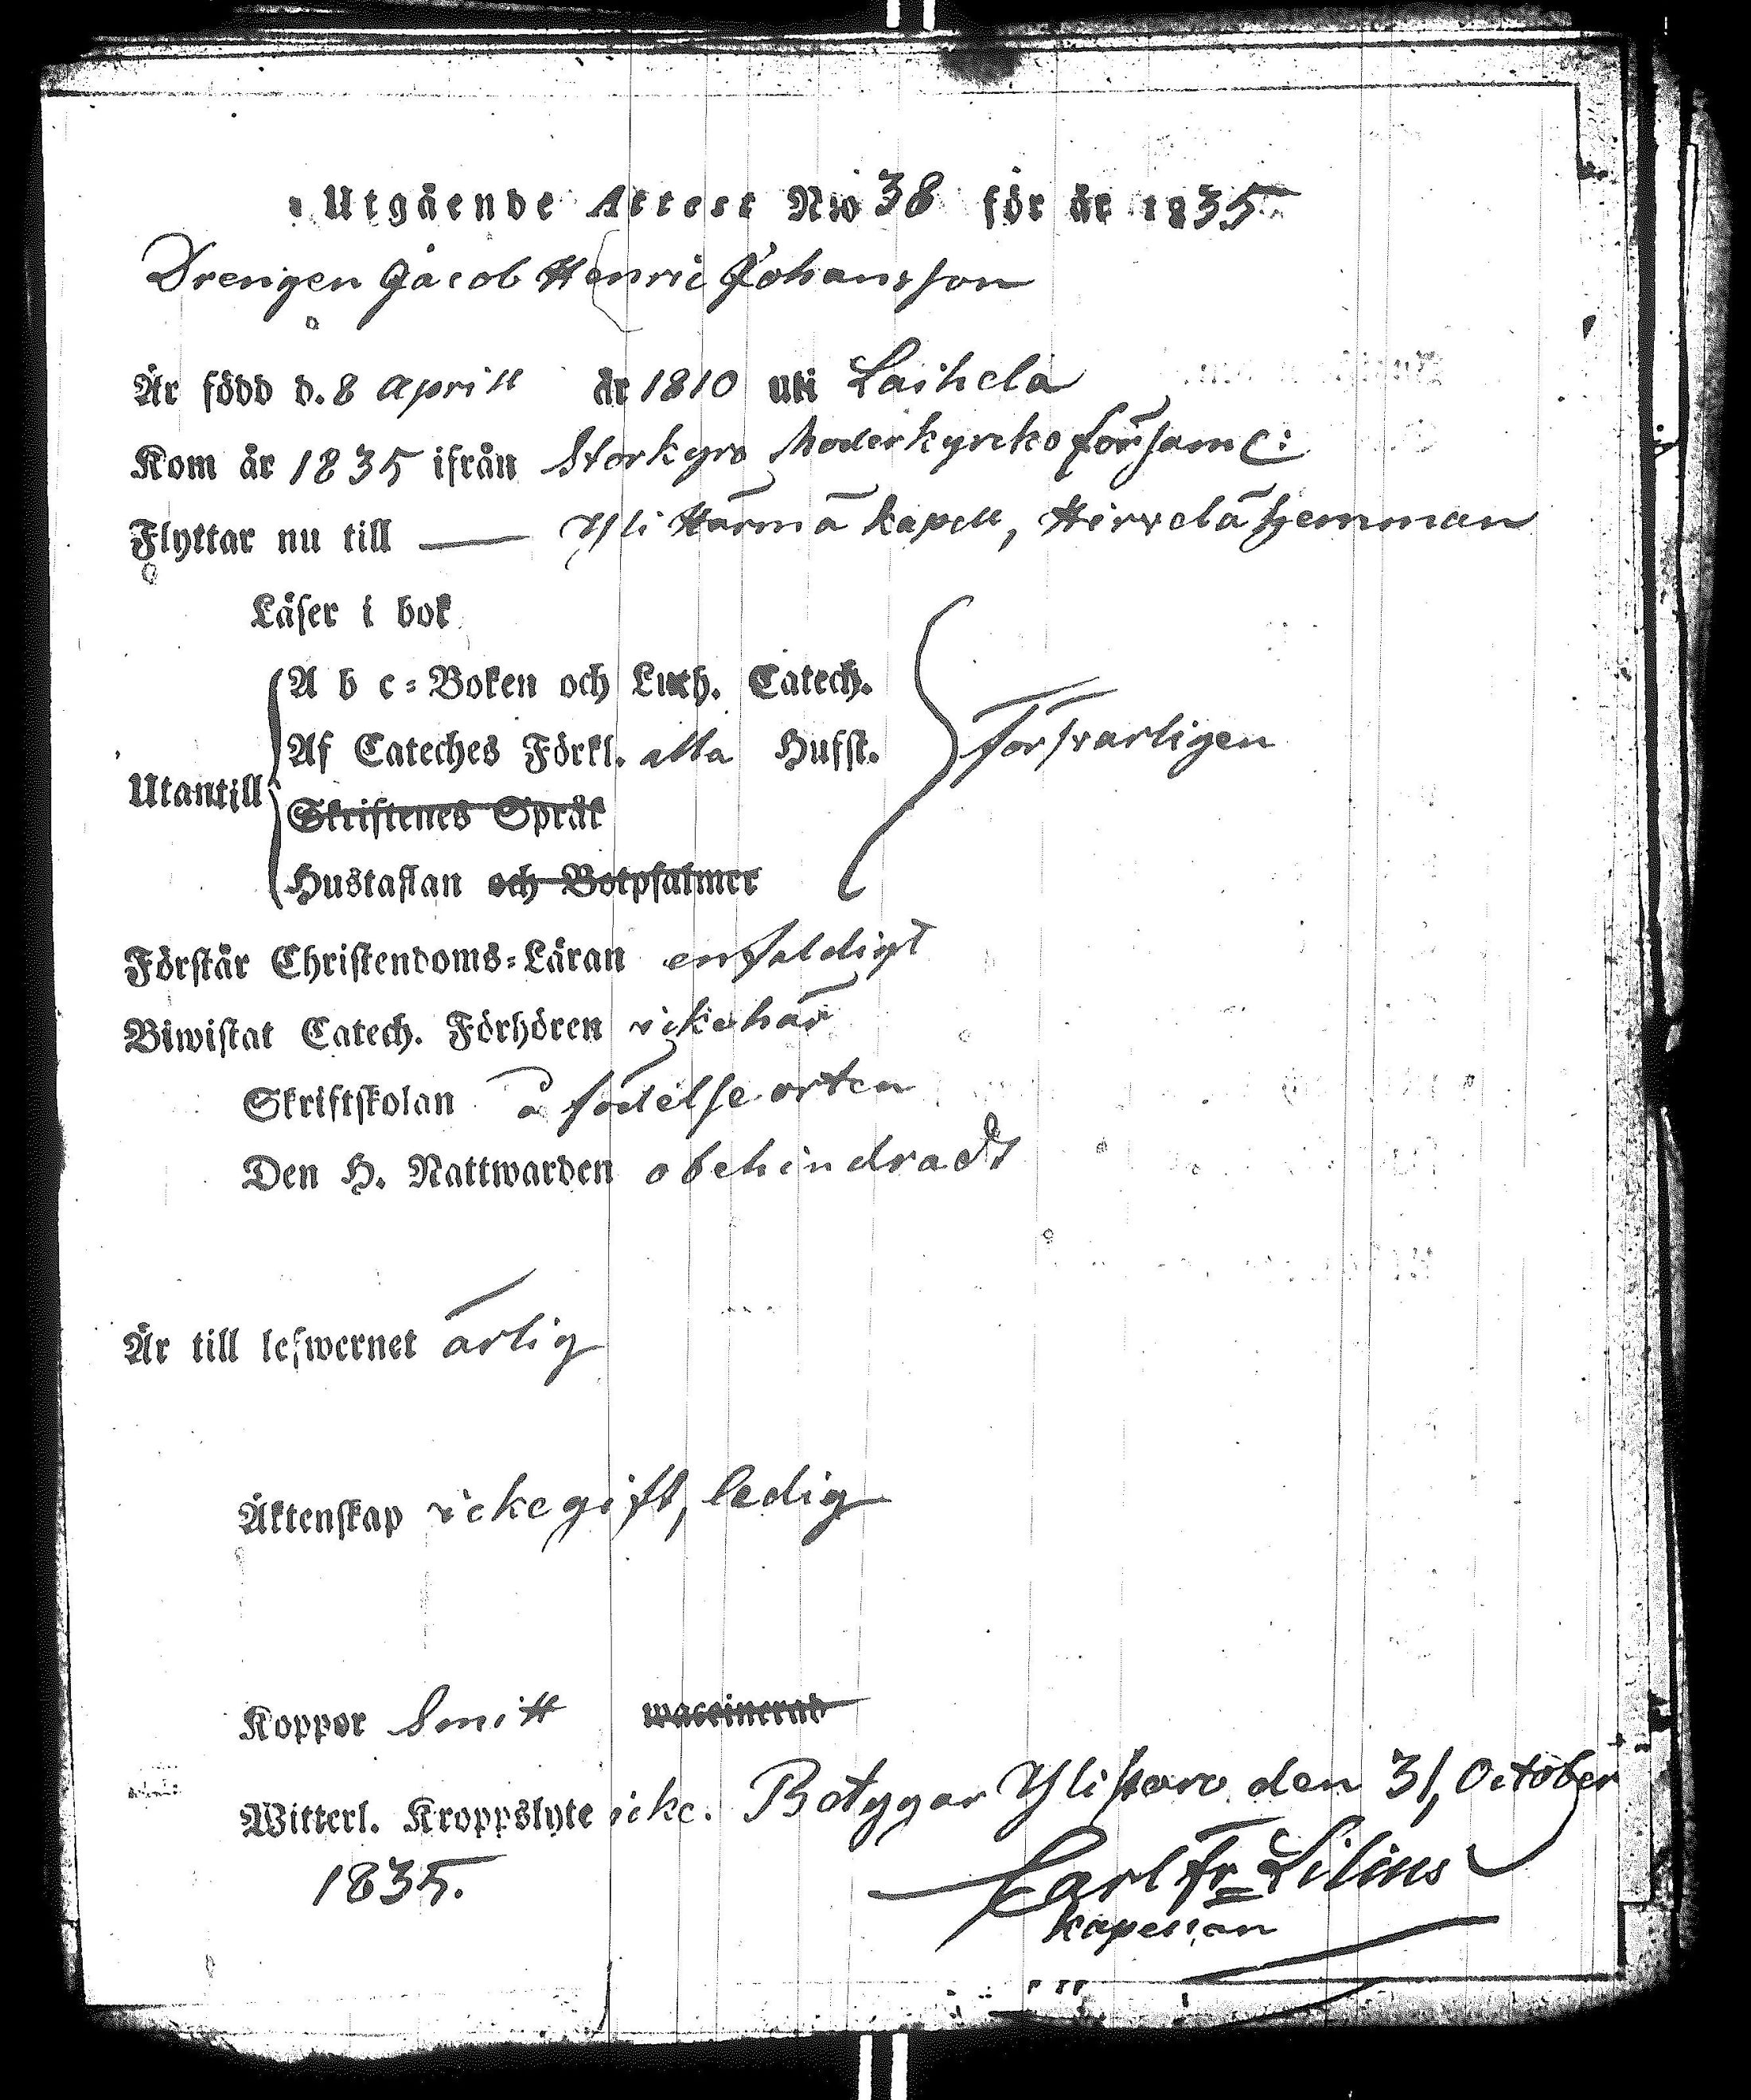 Utgående Attest N:o 38 för år 1835.
Drengen Jacob Henric Johansson
Är född d. 8 Aprill år 1810 uti Laihela
Kom år 1835 ifrån Storkyro Moderkyrko församl:
Flyttar nu till — Yli Härmä kapell, Hirvelä hemman
Läser i bok
A b c-Boken och Luth. Catech.
Af Cateches Förkl. alla Husst.
Försvarligen
Utantill
Skriftenes Språk
Hustaflan och Botpsalmer
Förstår Christendoms-Läran enfaldigt
Biwistat Catech. Förhören icke här
Skriftskolan å födelse orten
Den H. Nattwarden obehindradt
Är till lefwernet ärlig
Äktenskap icke gift, ledig
Koppor Smitt waccinerad
Witterl. Kroppslyte icke. Betygar Ylistaro den 31, October
1835.
Carl Fr Lilius
Kapellan